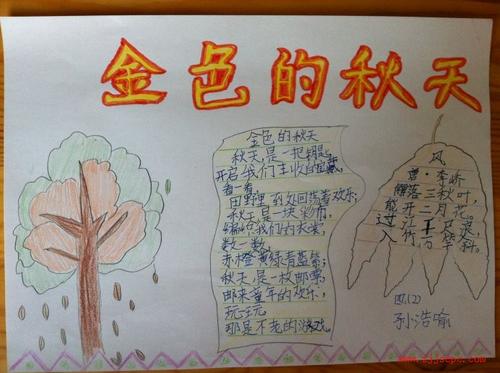 金色的秋天
金色的秋天
秋天,是一把钥匙,
开启我们丰收的宝藏,
看一看
田野里到处回荡着欢乐;
秋天是一块彩布,
我们的衣裳,
数一数,
赤橙黄绿青蓝紫;
秋天是一枚邮票,
邮来童年的欢乐,
玩一玩
那是不老的游戏。
风
唐·李峤
解落三秋叶,
能开二月花。
过江千尺浪,
入竹万竿斜。
四(2)
孙浩喻